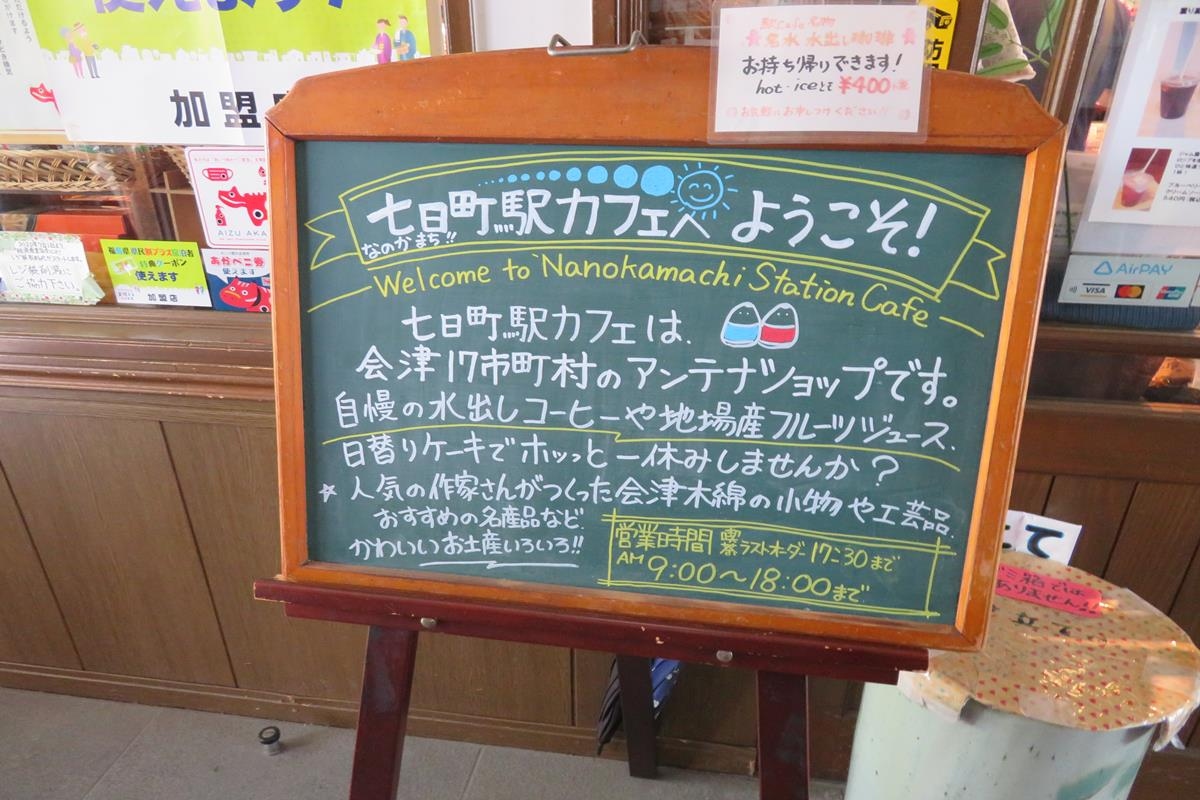 使えます!
加盟
駅Cafe名物
名水 水出し珈琲
お持ち帰りできます!
hot・iceとも ¥400
お気軽にお申しつけください!!
七日町駅カフェへ ようこそ!
なのかまち!!
Welcome to Nanokamachi Station Cafe
七日町駅カフェは、
会津17市町村のアンテナショップです。
自慢の水出しコーヒーや地場産フルーツジュース、
日替りケーキでホッっと一休みしませんか?
☆人気の作家さんがつくった会津木綿の小物や工芸品
おすすめの名産品など
かわいいお土産いろいろ!!
営業時間 喫茶ラストオーダー17:30まで
AM 9:00〜18:00まで
AIZU AKA
レジ袋削減に
ご協力下さい。
福島県 県民割プラス宿泊お
特典クーポン
使えます
加盟店
あかべこ券
使えます
AirPAY
VISA
ゴミ箱では
ありません!!